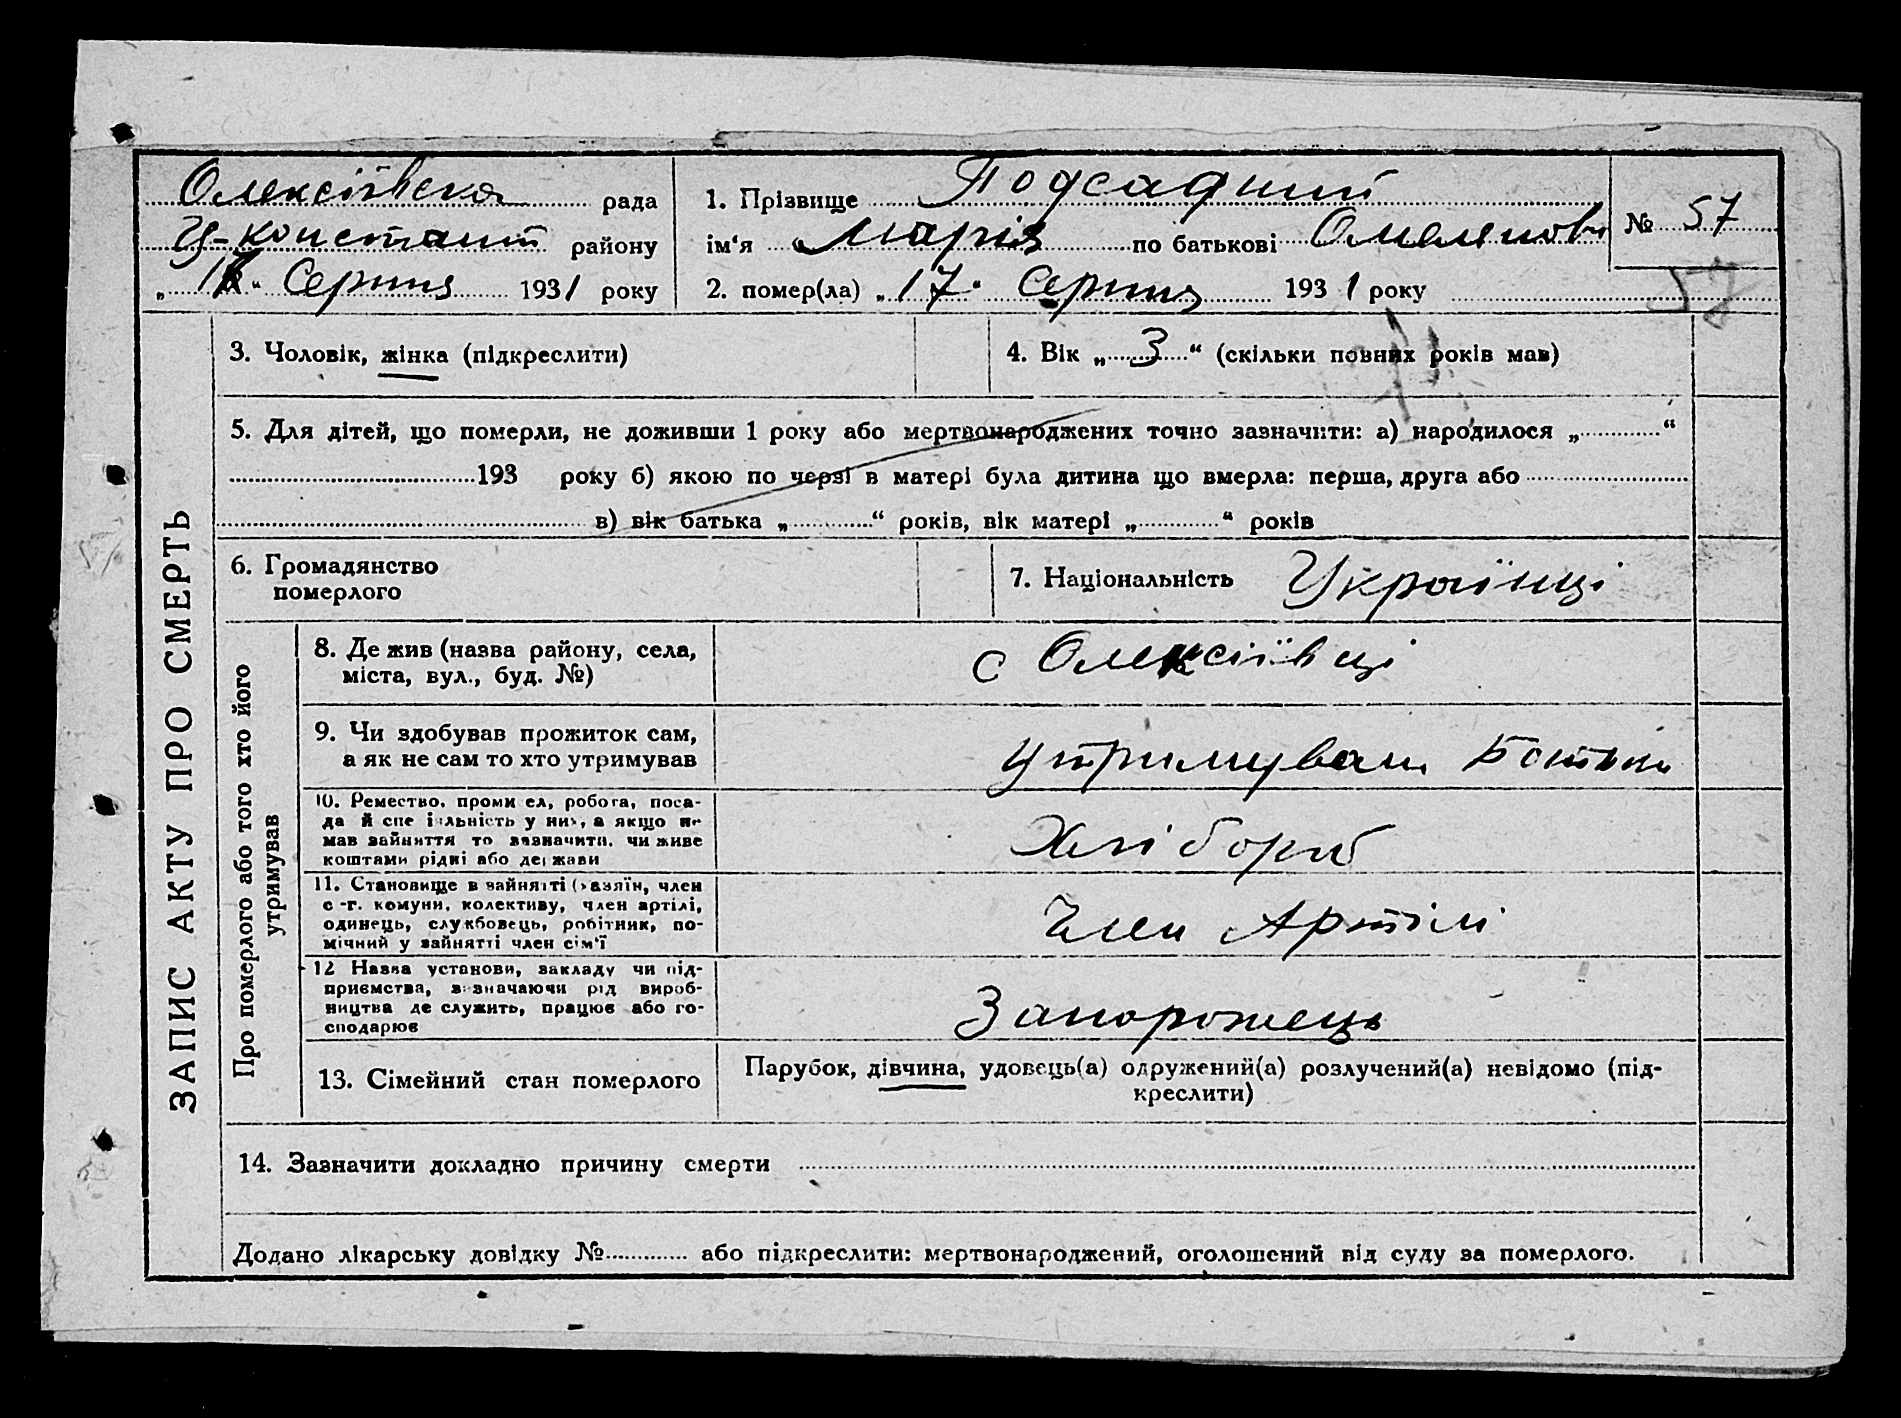 Олексіївска рада
Ц-констант району
„ 17 “ Серпня 1931 року
1. Прізвище Подсадний
ім‘я Марія по батькові Омелянові
2. помер(ла) „ 17 “ Серпня 1931 року
№ 57
57
ЗАПИС АКТУ ПРО СМЕРТЬ
3. Чоловік, жінка (підкреслити)
4. Вік „ 3 “ (скільки повних років мав)
5. Для дітей, що померли, не доживши 1 року або мертвонароджених точно зазначити: а) народилося „ “
193 року б) якою по черзі в матері була дитина що вмерла: перша, друга або
в) вік батька „ “ років, вік матері „ “ років
6. Громадянство
померлого
7. Національність Українці
Про померлого або того хто його
утримував
8. Де жив (назва району, села,
міста, вул., буд. №)
с Олексіївці
9. Чи здобував прожиток сам,
а як не сам то хто утримував
утримували Батьки
10. Ремество, промисел, робота, поса-
да й спеціяльність у них, а якщо не
мав зайняття то зазначити, чи живе
коштами рідні або держави
Хлібороб
11. Становище в зайнятті (хазяїн, член
с.-г. комуни, колективу, член артілі,
одинець, службовець, робітник, по-
мічний у зайнятті член сім‘ї
Член Артілі
12 Назва установи, закладу чи під-
приємства, визначаючи рід вироб-
ництва де служить, працює або го-
сподарює
Запорожець
13. Сімейний стан померлого
Парубок, дівчина, удовець(а) одружений(а) розлучений(а) невідомо (під-
креслити)
14. Зазначити докладно причину смерти
Додано лікарську довідку № або підкреслити: мертвонароджений, оголошений від суду за померлого.